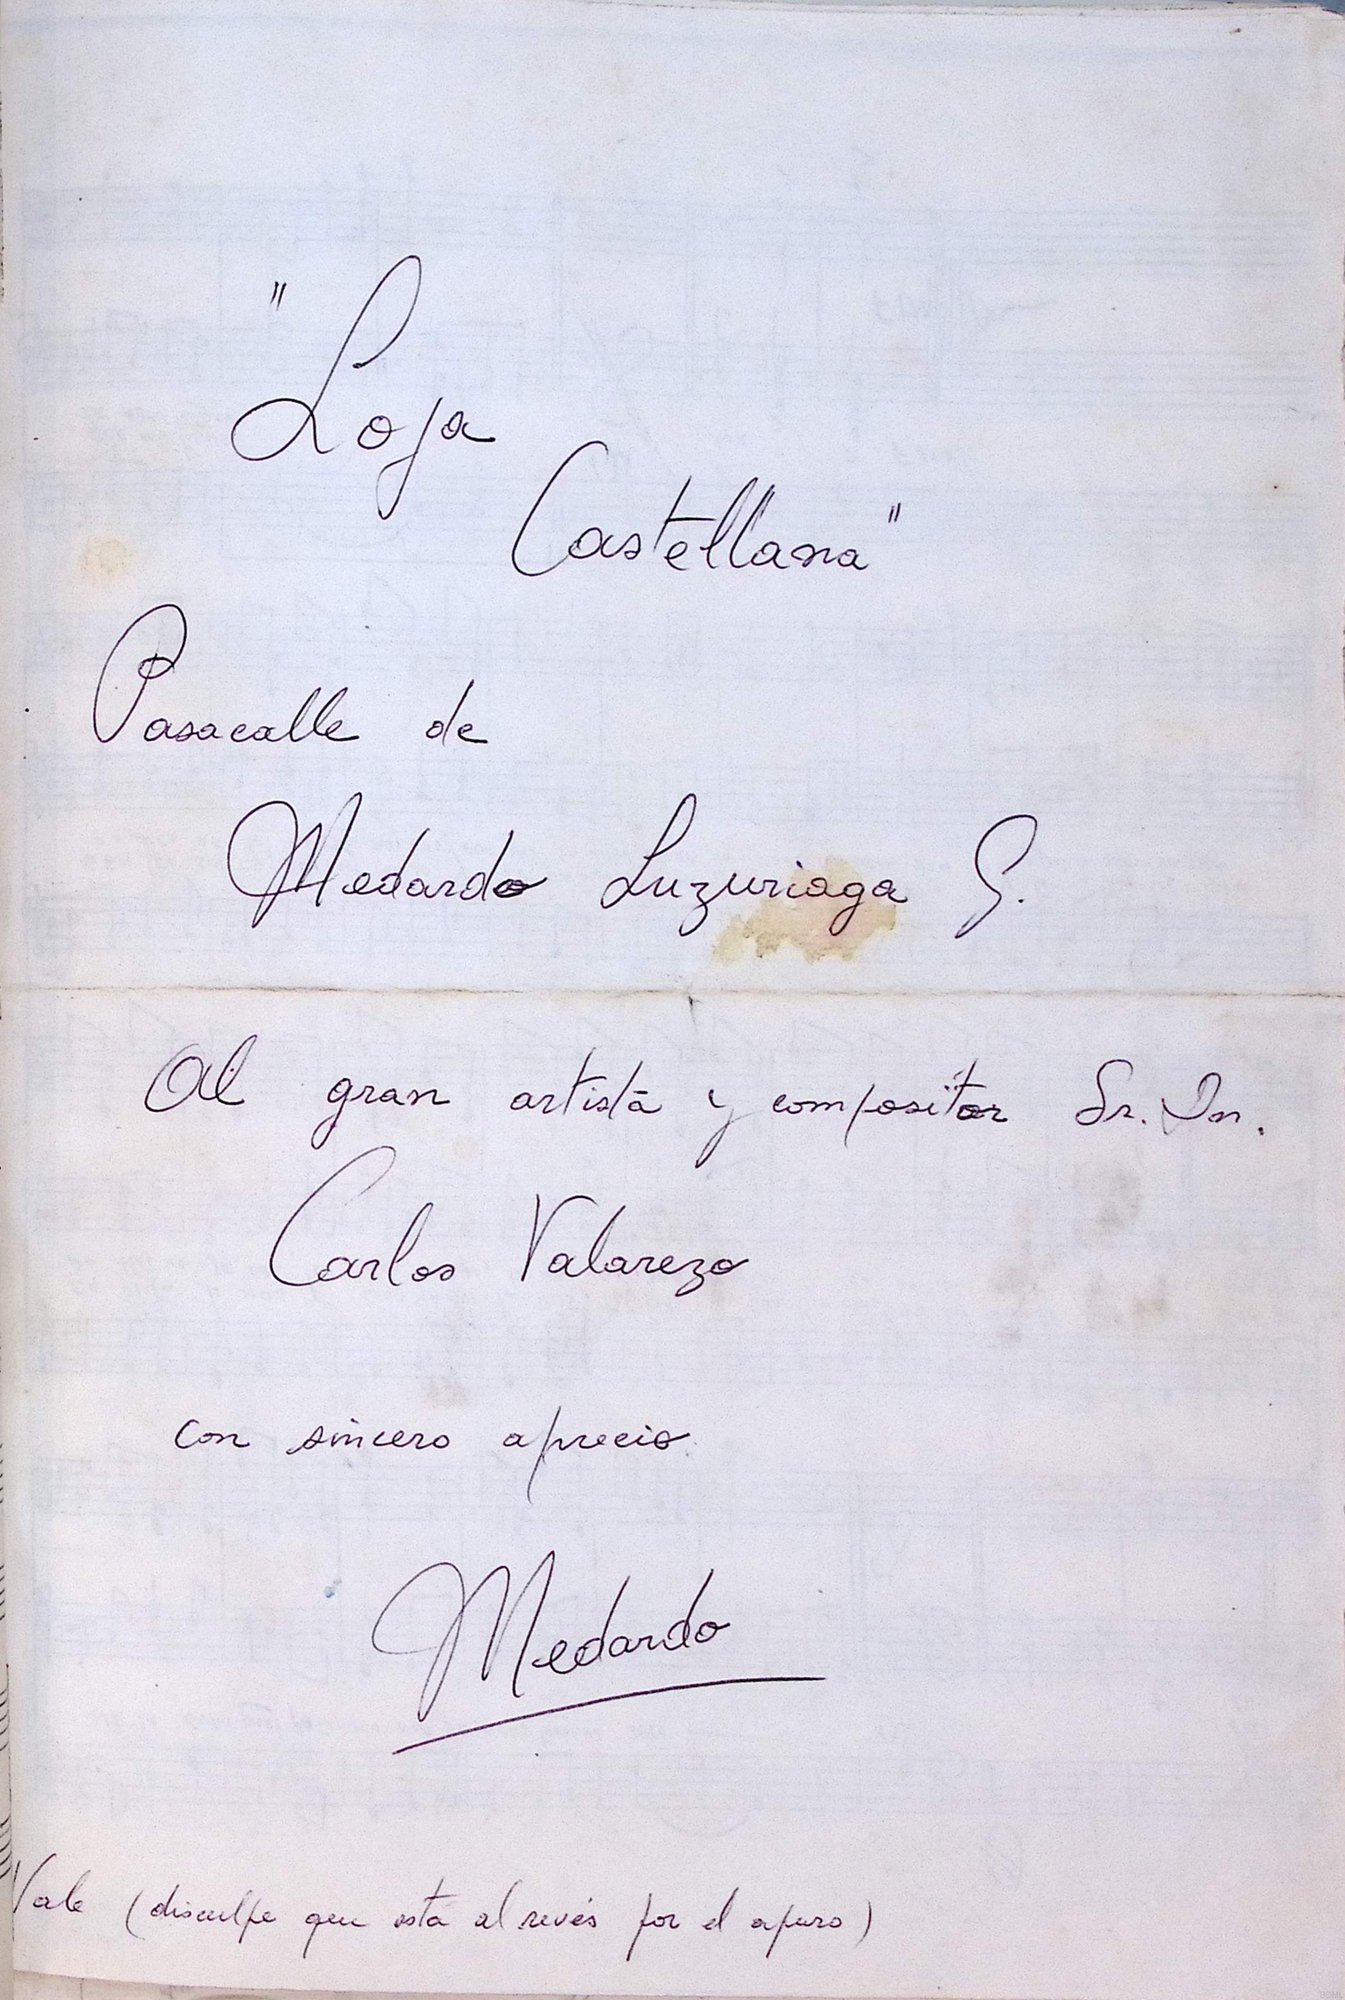 "Loja
Castellana"
Pasacalle de
Medardo Luzuriaga G.
Al gran artista y compositor Sr. Dn.
Carlos Valarezo
con sincero aprecio.
Medardo
Vale (disculpe que está al revés por el apuro)